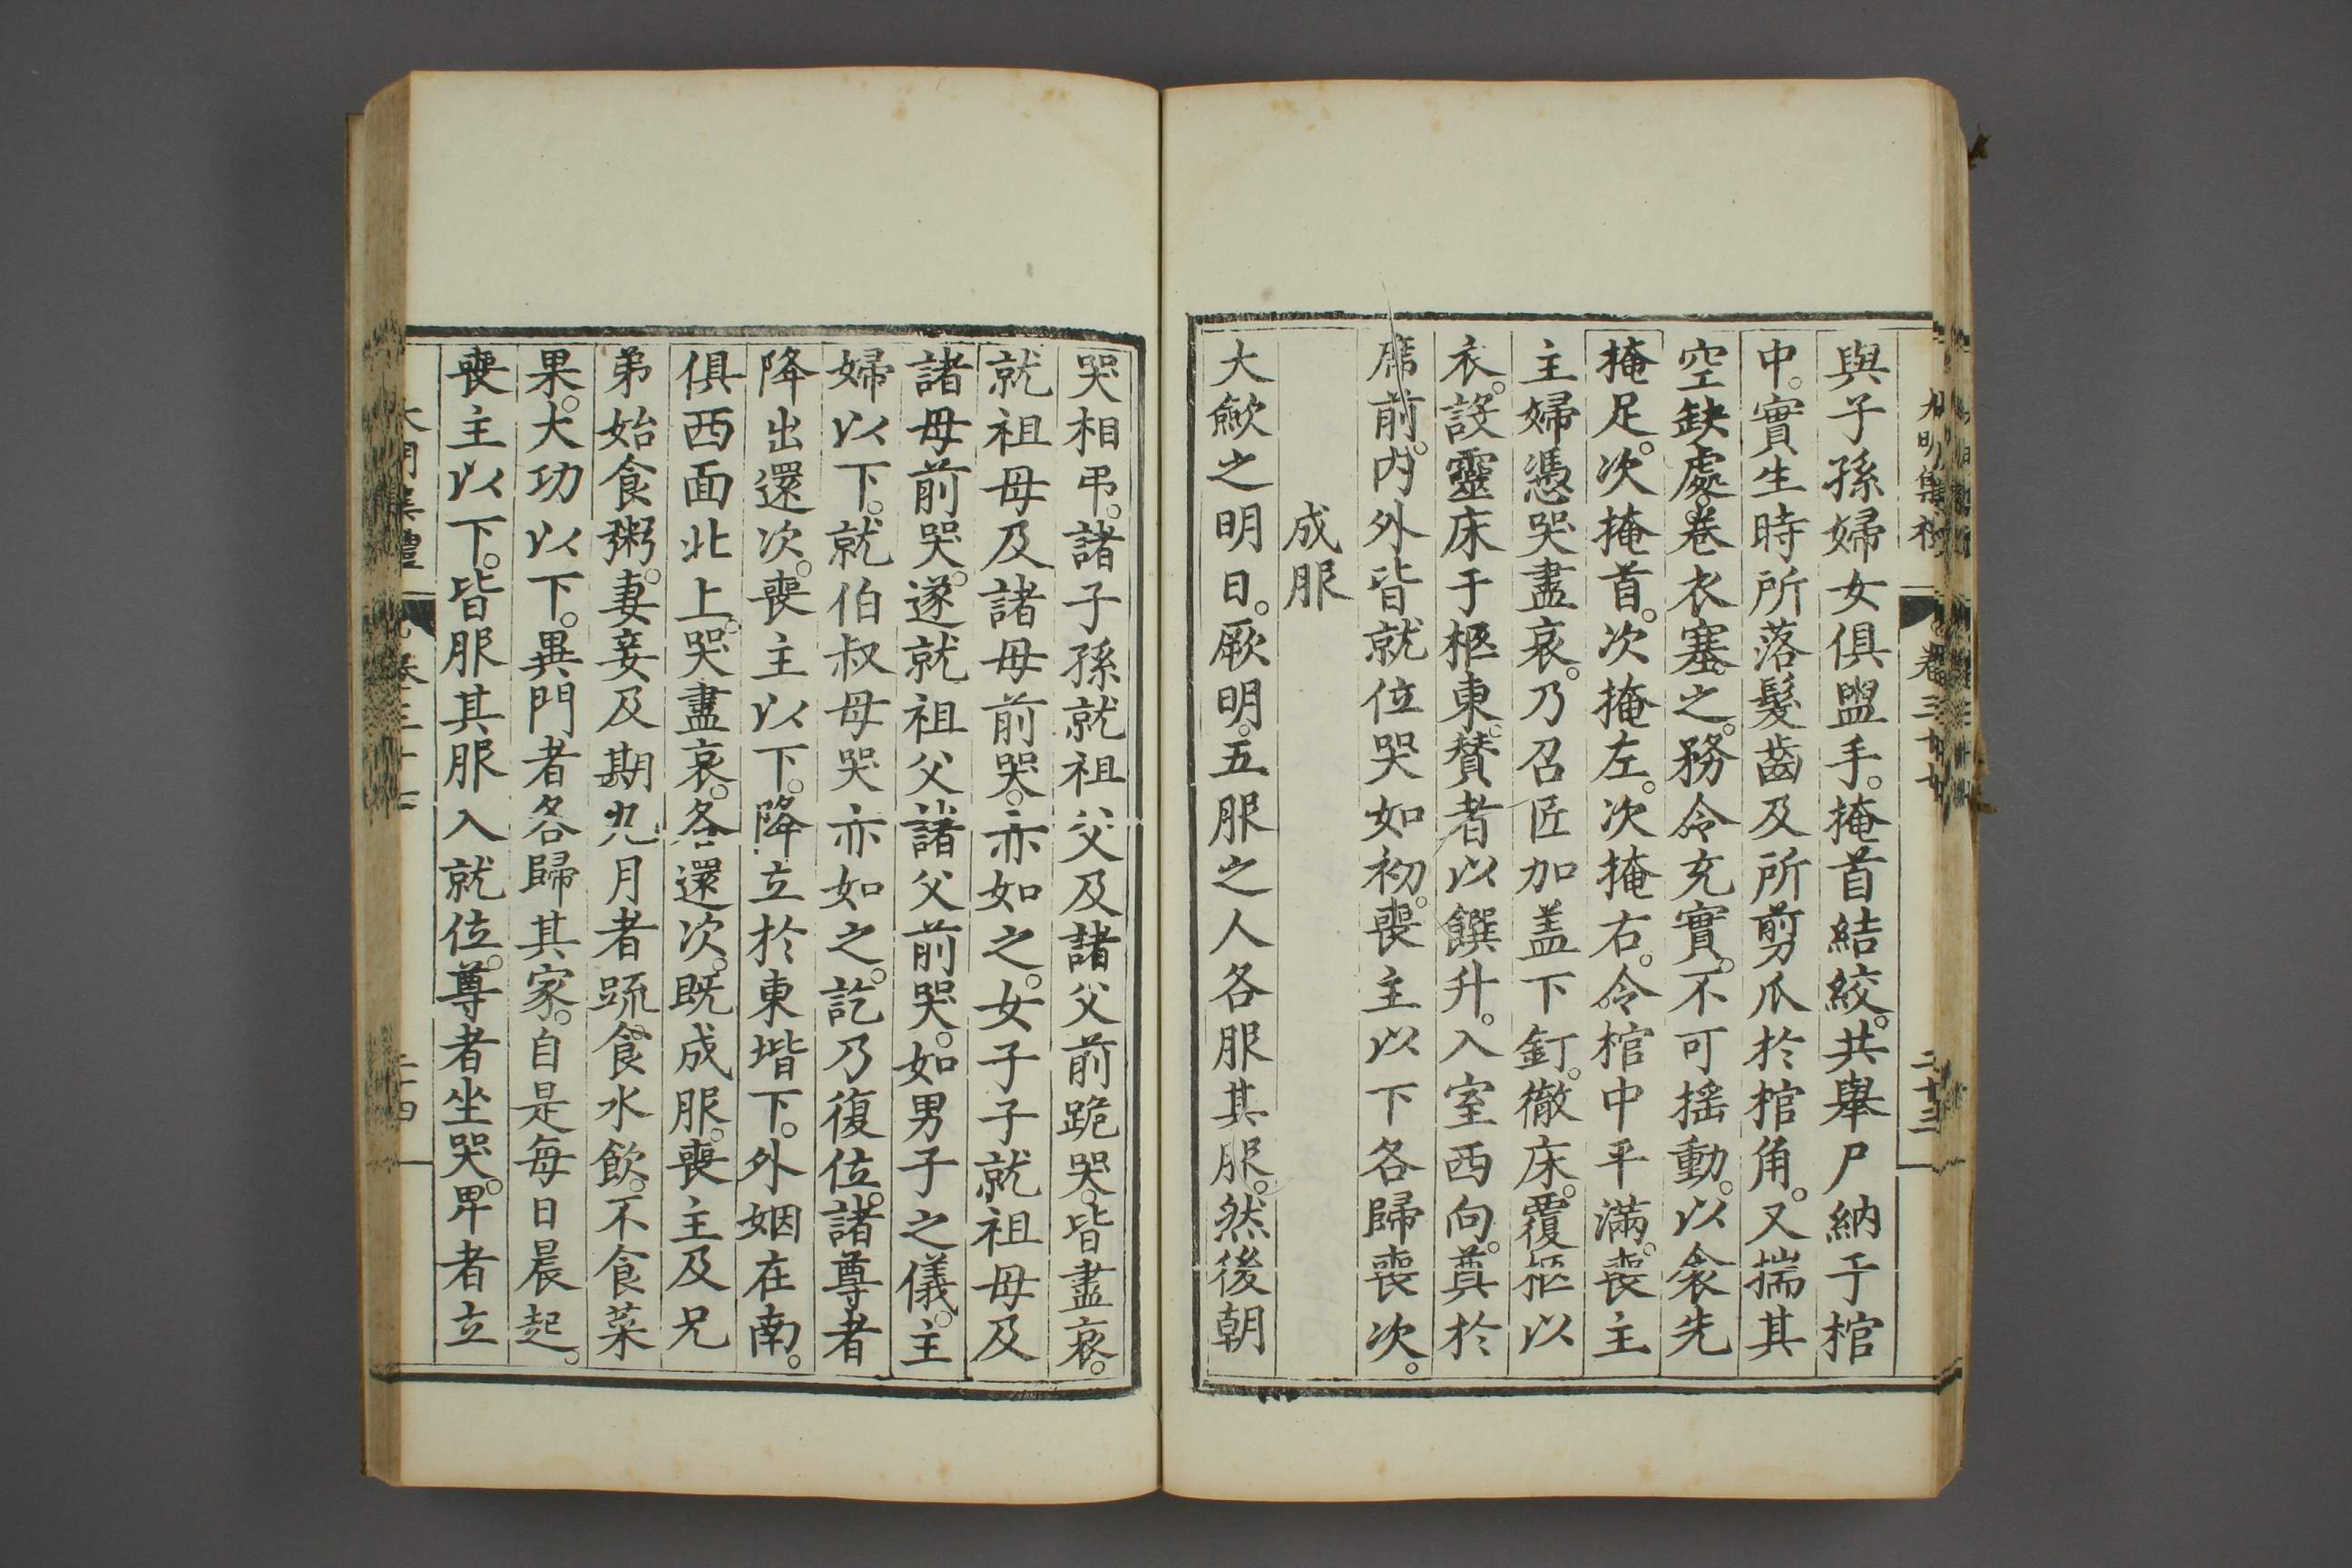 與子孫婦女俱盥手。掩首結絞。共舉尸納于棺
中。實生時所落髮齒及所剪爪於棺角。又揣其
空缺處。卷衣塞之。務令充實。不可揺動。以衾先
掩足。次掩首。次掩左。次掩右。令棺中平滿。喪主
主婦憑哭盡哀。乃召匠加盖下釘。徹床。覆柩以
衣。設靈床于柩東。賛者以饌升。入室西向。奠於
席前。内外皆就位哭如初。喪主以下各歸喪次。
成服
大歛之明日。厥明。五服之人各服其服。然後朝
哭相弔。諸子孫就祖父及諸父前跪哭。皆盡哀。
就祖母及諸母前哭。亦如之。女子子就祖母及
諸母前哭。遂就祖父諸父前哭。如男子之儀。主
婦以下。就伯叔母哭亦如之。訖乃復位。諸尊者
降出還次。喪主以下。降立於東堦下。外姻在南。
俱西面北上。哭盡哀。各還次。既成服。喪主及兄
弟始食粥。妻妾及期九月者疏食水飲。不食菜
果。大功以下。異門者各歸其家。自是每日晨起。
喪主以下。皆服其服入就位。尊者坐哭。卑者立